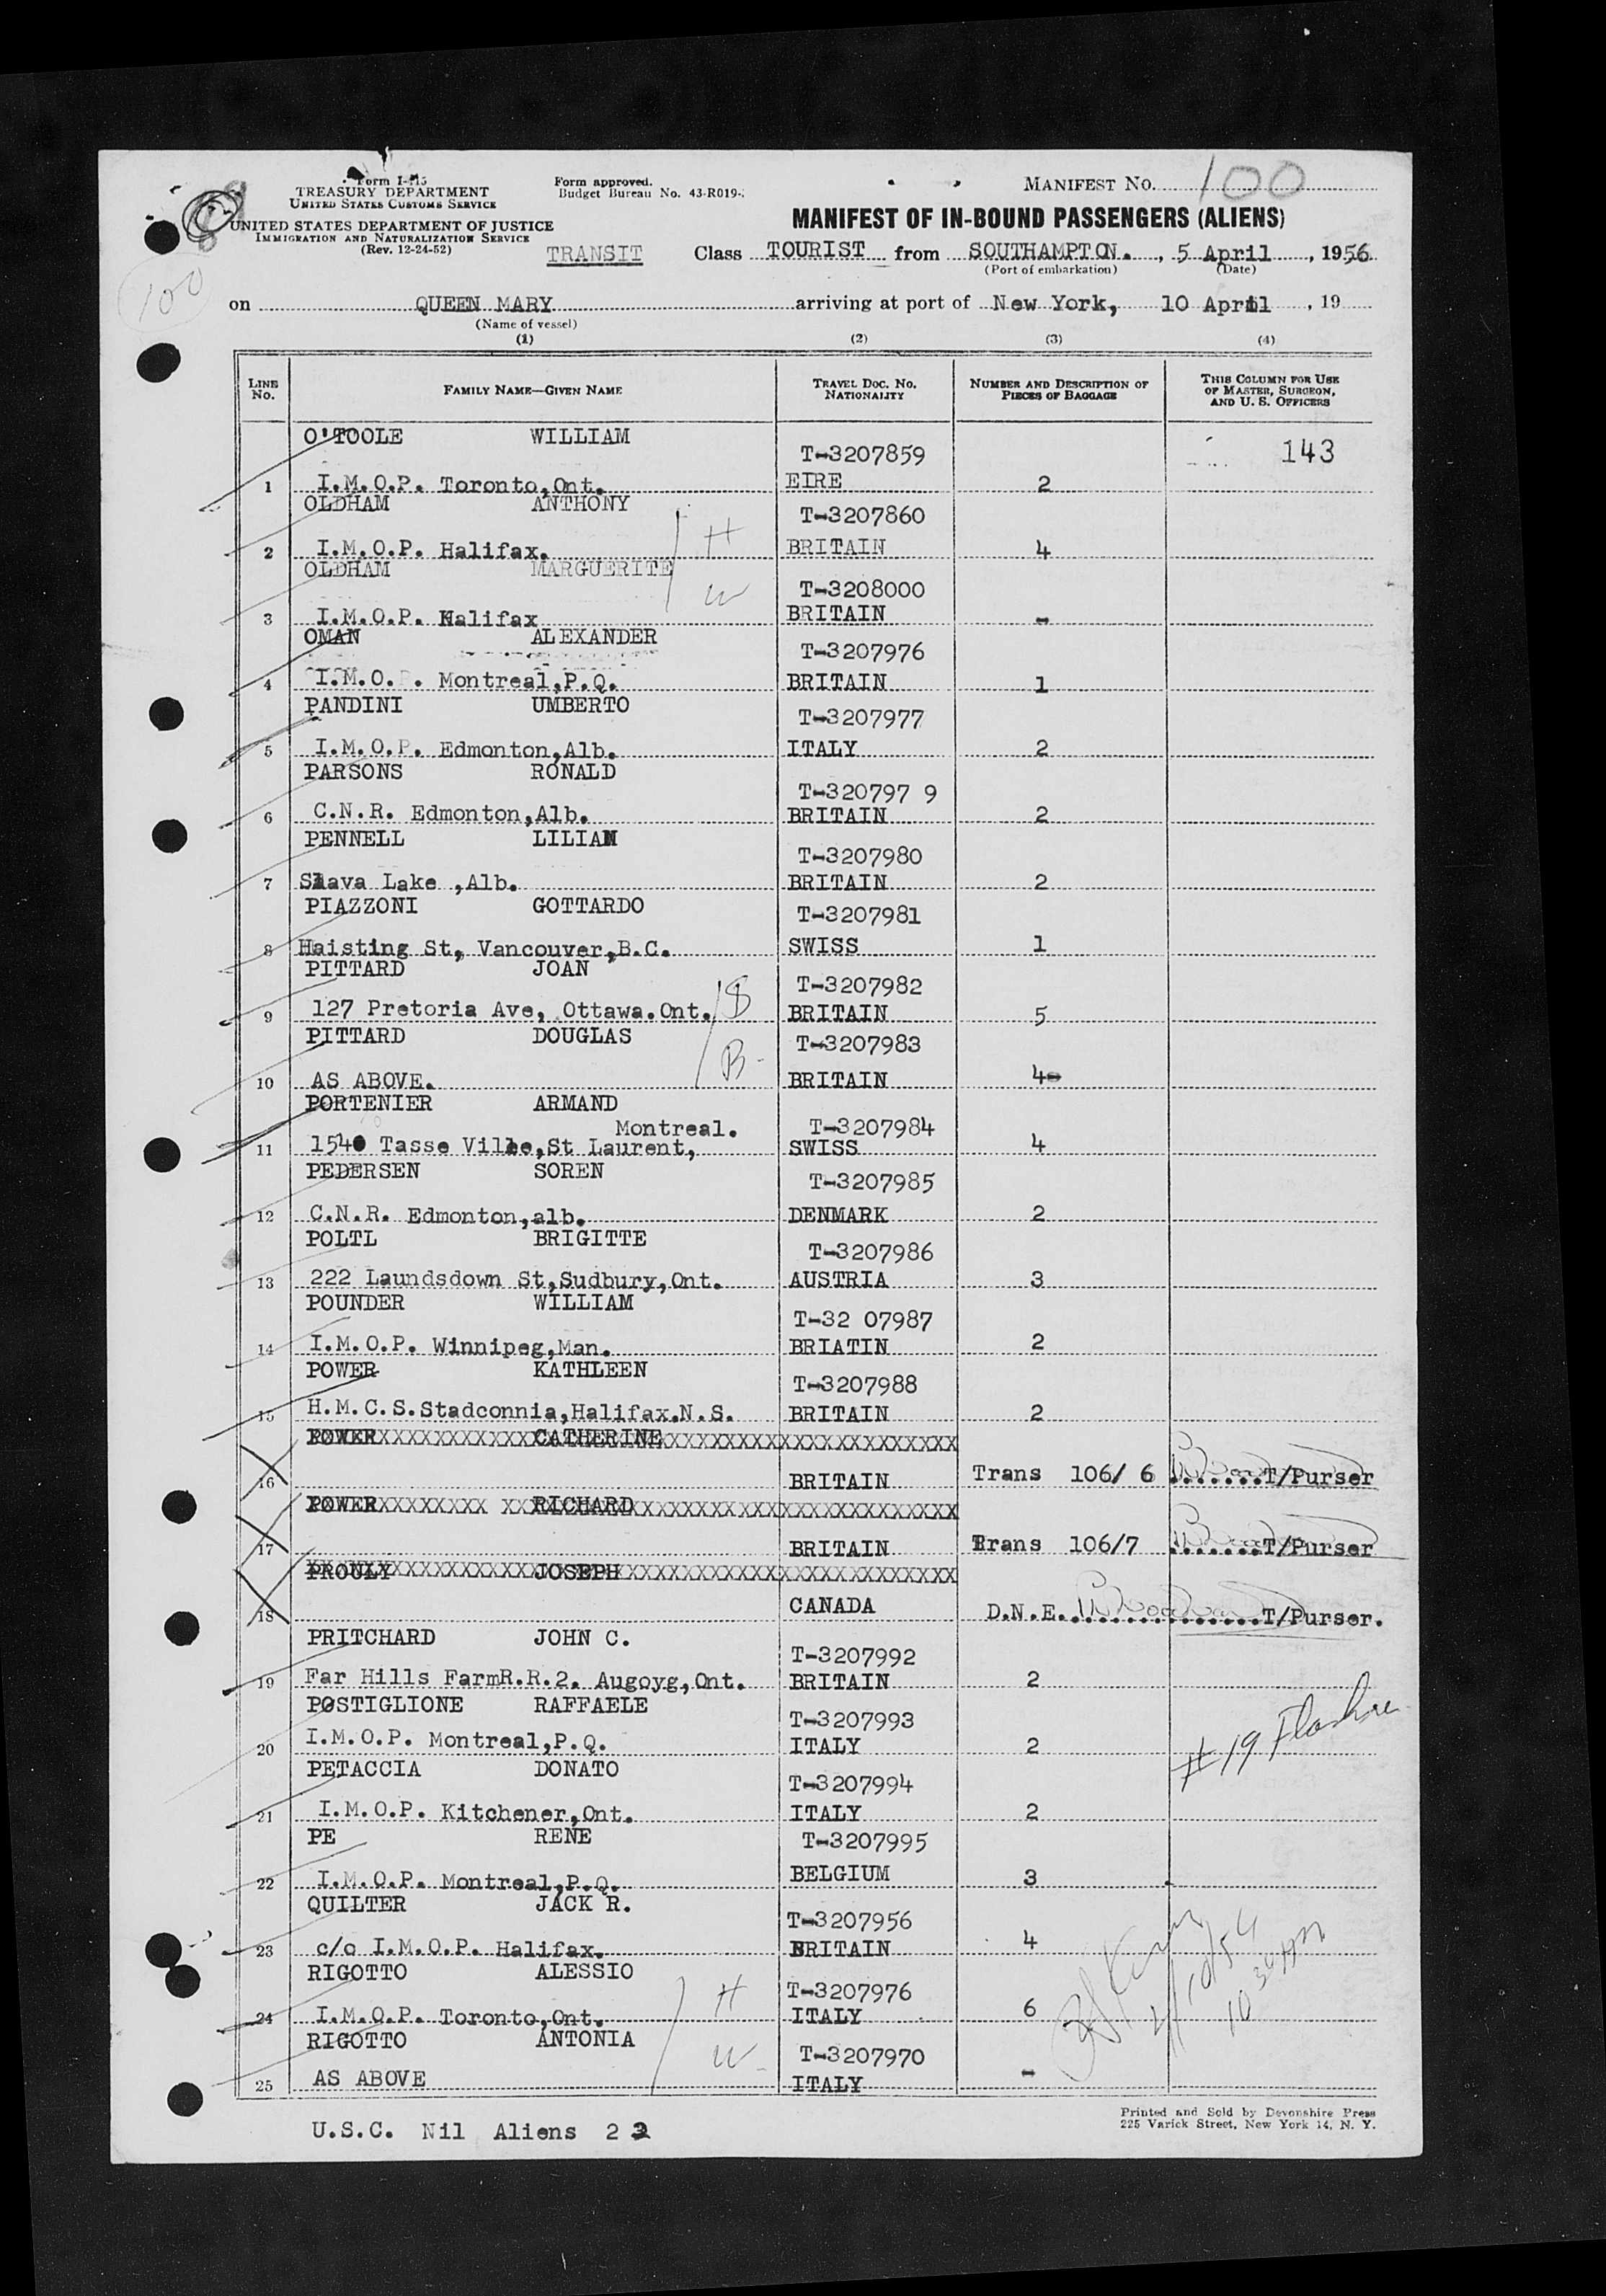 Form I-415
TREASURY DEPARTMENT
UNITED STATES CUSTOMS SERVICE
UNITED STATES DEPARTMENT OF JUSTICE
IMMIGRATION AND NATURALIZATION SERVICE
(Rev. 12-24-52)
Form approved.
Budget Bureau No. 43-R019-
MANIFEST NO. 100
MANIFEST OF IN-BOUND PASSENGERS (ALIENS)
TRANSIT Class TOURIST from SOUTHAMPTON. , 5 April , 1956
(Port of embarkation) (Date)
100
on QUEEN MARY arriving at port of New York, 10 April , 19
(Name of vessel)
(1) (2) (3) (4)
LINE No. FAMILY NAME—GIVEN NAME TRAVEL DOC. NO. NATIONALITY NUMBER AND DESCRIPTION OF PIECES OF BAGGAGE THIS COLUMN FOR USE OF MASTER, SURGEON, AND U. S. OFFICERS
O'TOOLE WILLIAM T-3207859 143
1 I.M.O.P. Toronto,Ont. EIRE 2
OLDHAM ANTHONY T-3207860
2 I.M.O.P. Halifax. H BRITAIN 4
OLDHAM MARGUERITE T-3208000
3 I.M.O.P. Halifax W BRITAIN -
OMAN ALEXANDER T-3207976
4 I.M.O. . Montreal,P.Q. BRITAIN 1
PANDINI UMBERTO T-3207977
5 I.M.O.P. Edmonton,Alb. ITALY 2
PARSONS RONALD T-320797 9
6 C.N.R. Edmonton,Alb. BRITAIN 2
PENNELL LILIAN T-3207980
7 Slava Lake ,Alb. BRITAIN 2
PIAZZONI GOTTARDO T-3207981
8 Haisting St, Vancouver,B.C. SWISS 1
PITTARD JOAN T-3207982
9 127 Pretoria Ave, Ottawa.Ont. S BRITAIN 5
PITTARD DOUGLAS T-3207983
10 AS ABOVE. B BRITAIN 4-
PORTENIER ARMAND
Montreal. T-3207984
11 1540 Tasse Ville,St Laurent, SWISS 4
PEDERSEN SOREN T-3207985
12 C.N.R. Edmonton,alb. DENMARK 2
POLTL BRIGITTE T-3207986
13 222 Laundsdown St,Sudbury,Ont. AUSTRIA 3
POUNDER WILLIAM T-32 07987
14 I.M.O.P. Winnipeg,Man. BRIATIN 2
POWER KATHLEEN T-3207988
15 H.M.C.S.Stadconnia,Halifax.N.S. BRITAIN 2
POWER CATHERINE
16 BRITAIN Trans 106/ 6 .......T/Purser
POWER RICHARD
17 BRITAIN Trans 106/7 .......T/Purser
PROULY JOSEPH
18 CANADA D.N.E. ...............T/Purser.
PRITCHARD JOHN C. T-3207992
19 Far Hills FarmR.R.2. Augoyg,Ont. BRITAIN 2
POSTIGLIONE RAFFAELE T-3207993
20 I.M.O.P. Montreal,P.Q. ITALY 2 # 19
PETACCIA DONATO T-3207994
21 I.M.O.P. Kitchener,Ont. ITALY 2
PE RENE T-3207995
22 I.M.O.P. Montreal,P.Q. BELGIUM 3
QUILTER JACK R. T-3207956
23 c/o I.M.O.P. Halifax. BRITAIN 4
RIGOTTO ALESSIO T-3207976
24 I.M.O.P. Toronto,Ont. H ITALY 6
RIGOTTO ANTONIA T-3207970
25 AS ABOVE W ITALY -
U.S.C. Nil Aliens 2 2
Printed and Sold by Devonshire Press
225 Varick Street, New York 14, N. Y.